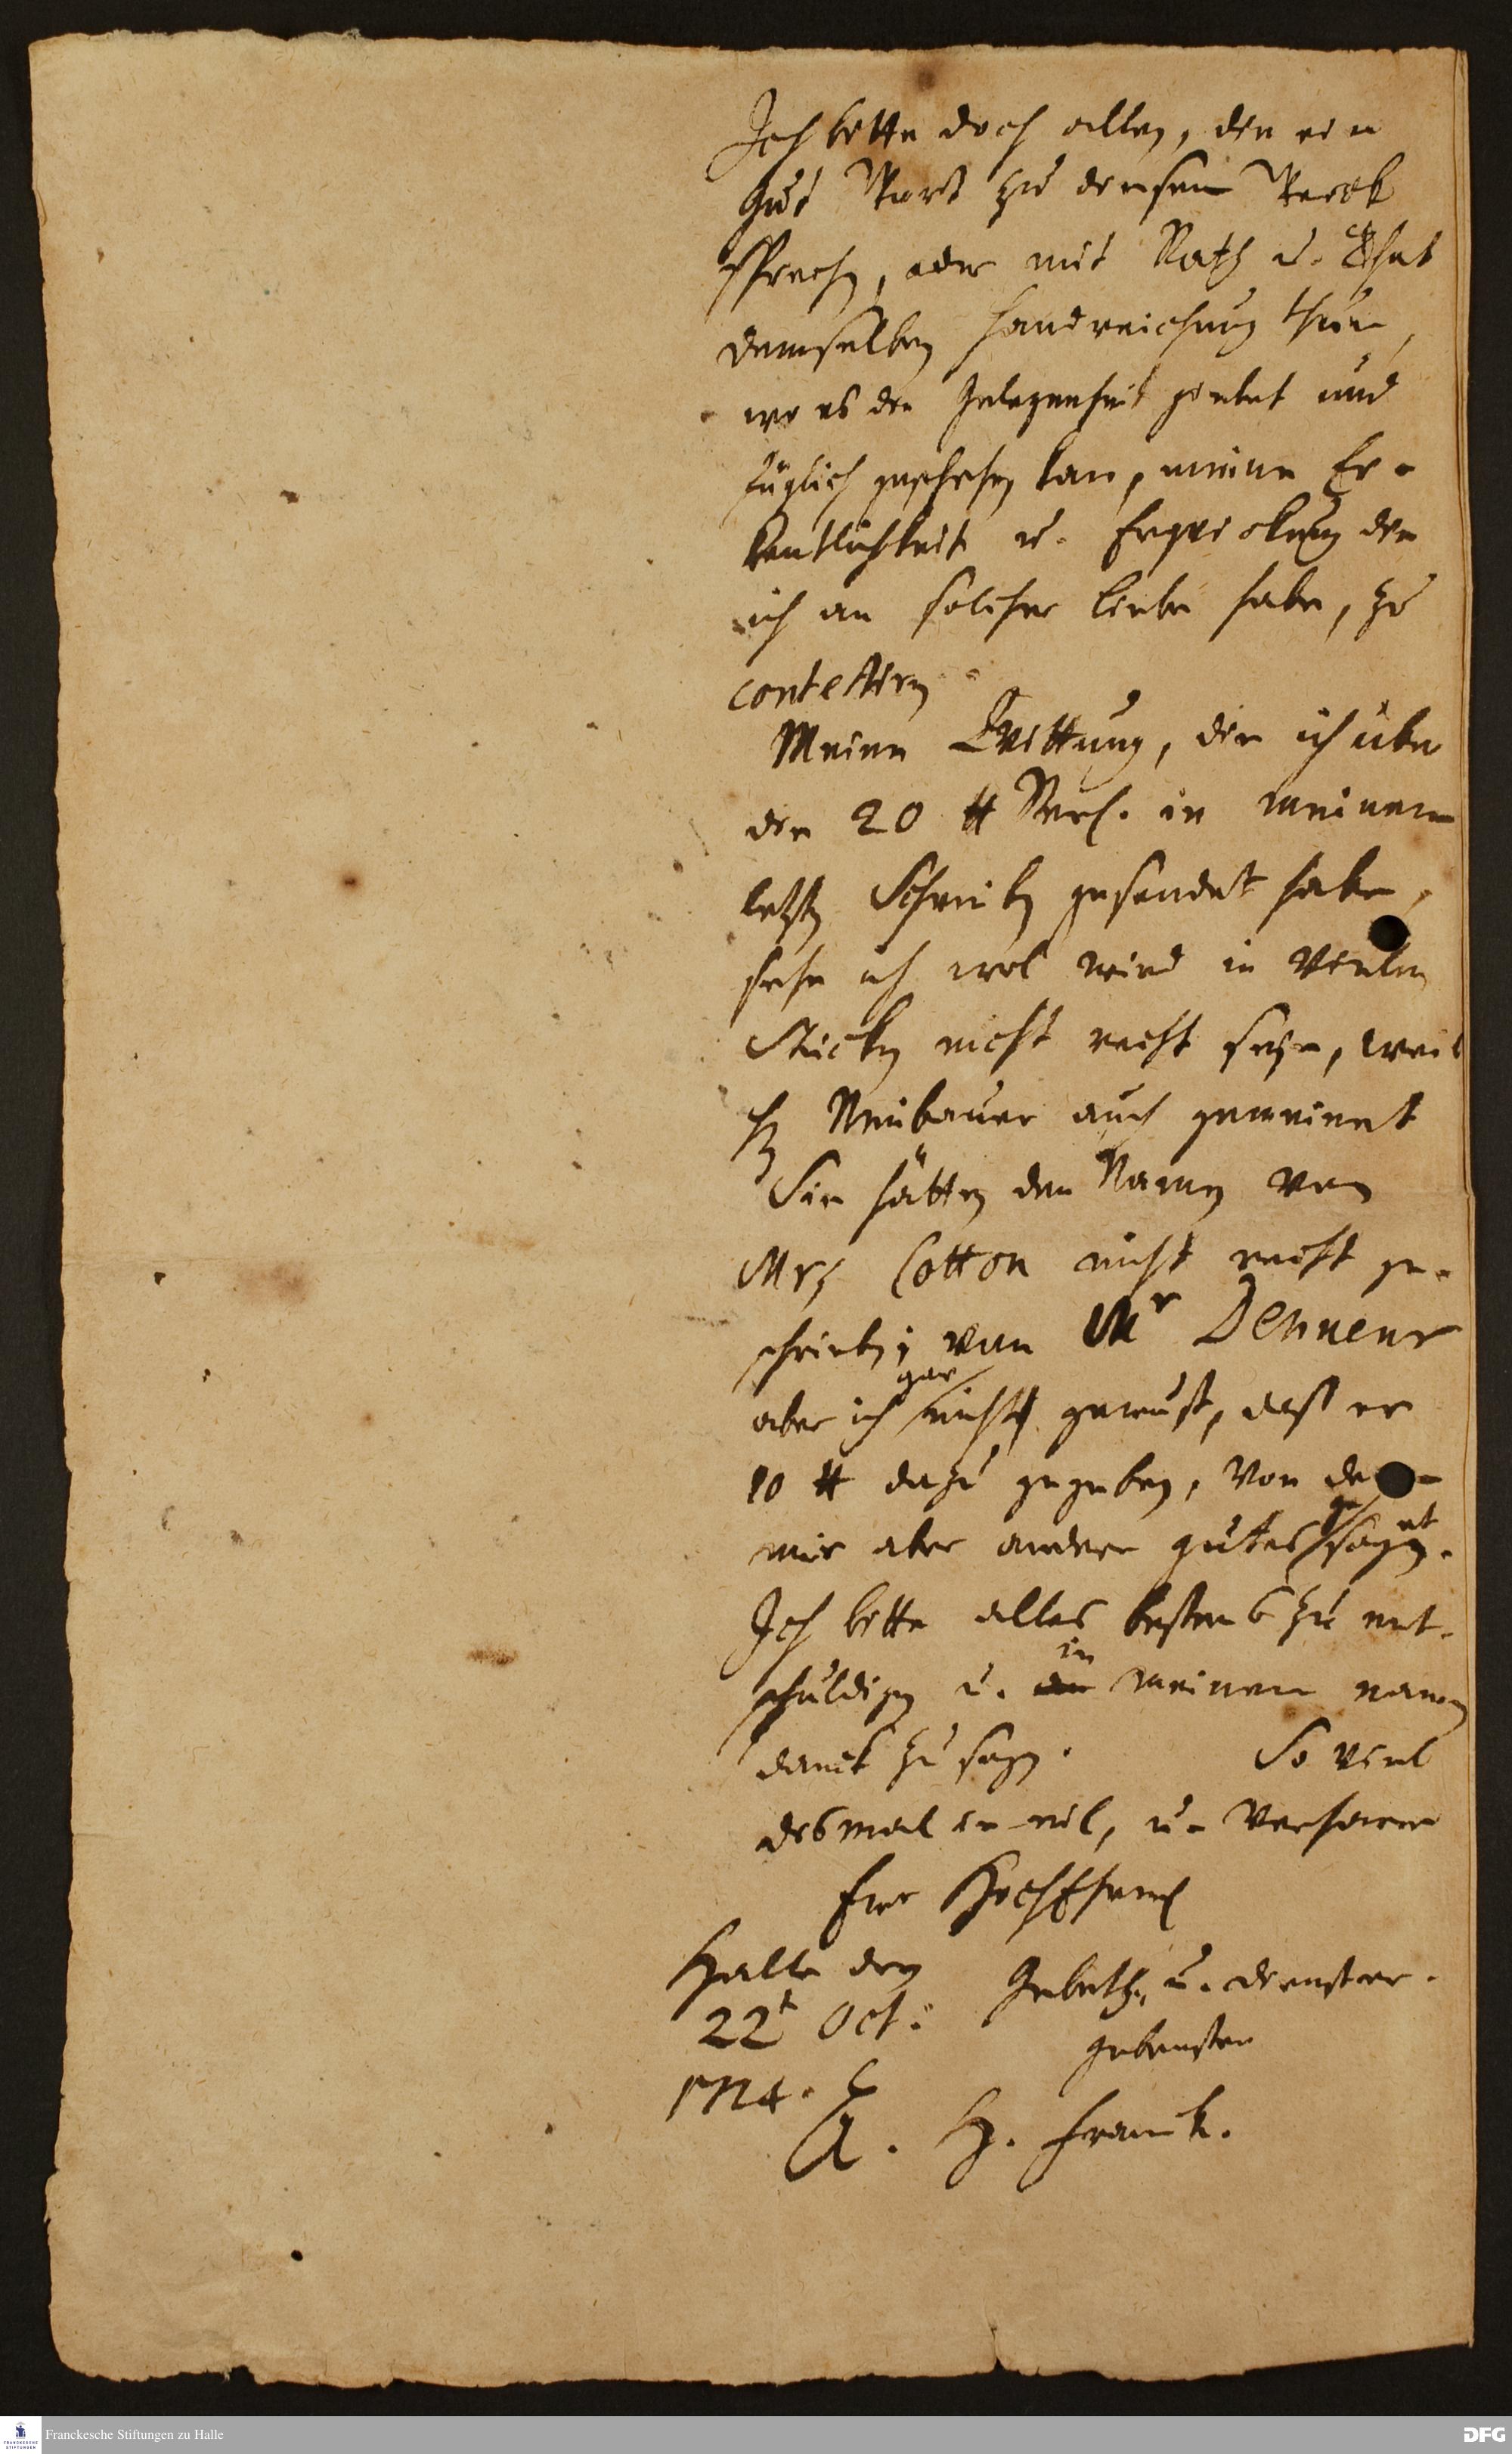 Ich bitte doch allen, die ein
gut Wort zu diesem Werck
sprechen, oder mit Rath u. That
demselben Handreichung thun,
wo es die Gelegenheit giebet und
füglich geschehen kan, meine Er-
kentlichkeit u. Erqvickung die
ich an solcher Liebe habe, zu
contestiren
Meine Qvittung, die ich über
die 20 ₶ in meinem
letzten Schreiben gesendet habe,
sehe ich wol wird in vielen
Stücken nicht recht seyn, weil
H. Neubauer auch gemeinet
Sie hätten den Namen von
Mrs Cotton nicht recht ge-
schrieben; von Mr Dehneur
aber ich gar nicht gewust, daß er
10 ₶ dazu gegeben, von dem
mir aber andere gutes gesaget.
Ich bitte alles bestens zu ent-
schuldigen u. in meinem namen
danck zu sagen. So viel
desmal in eil, u. verharre
Eur HochEhrw
Halle den Gebeth- u. dienster-
22t Oct: gebenster
1724. A. H. Franck.
Franckesche Stiftungen zu Halle
DFG